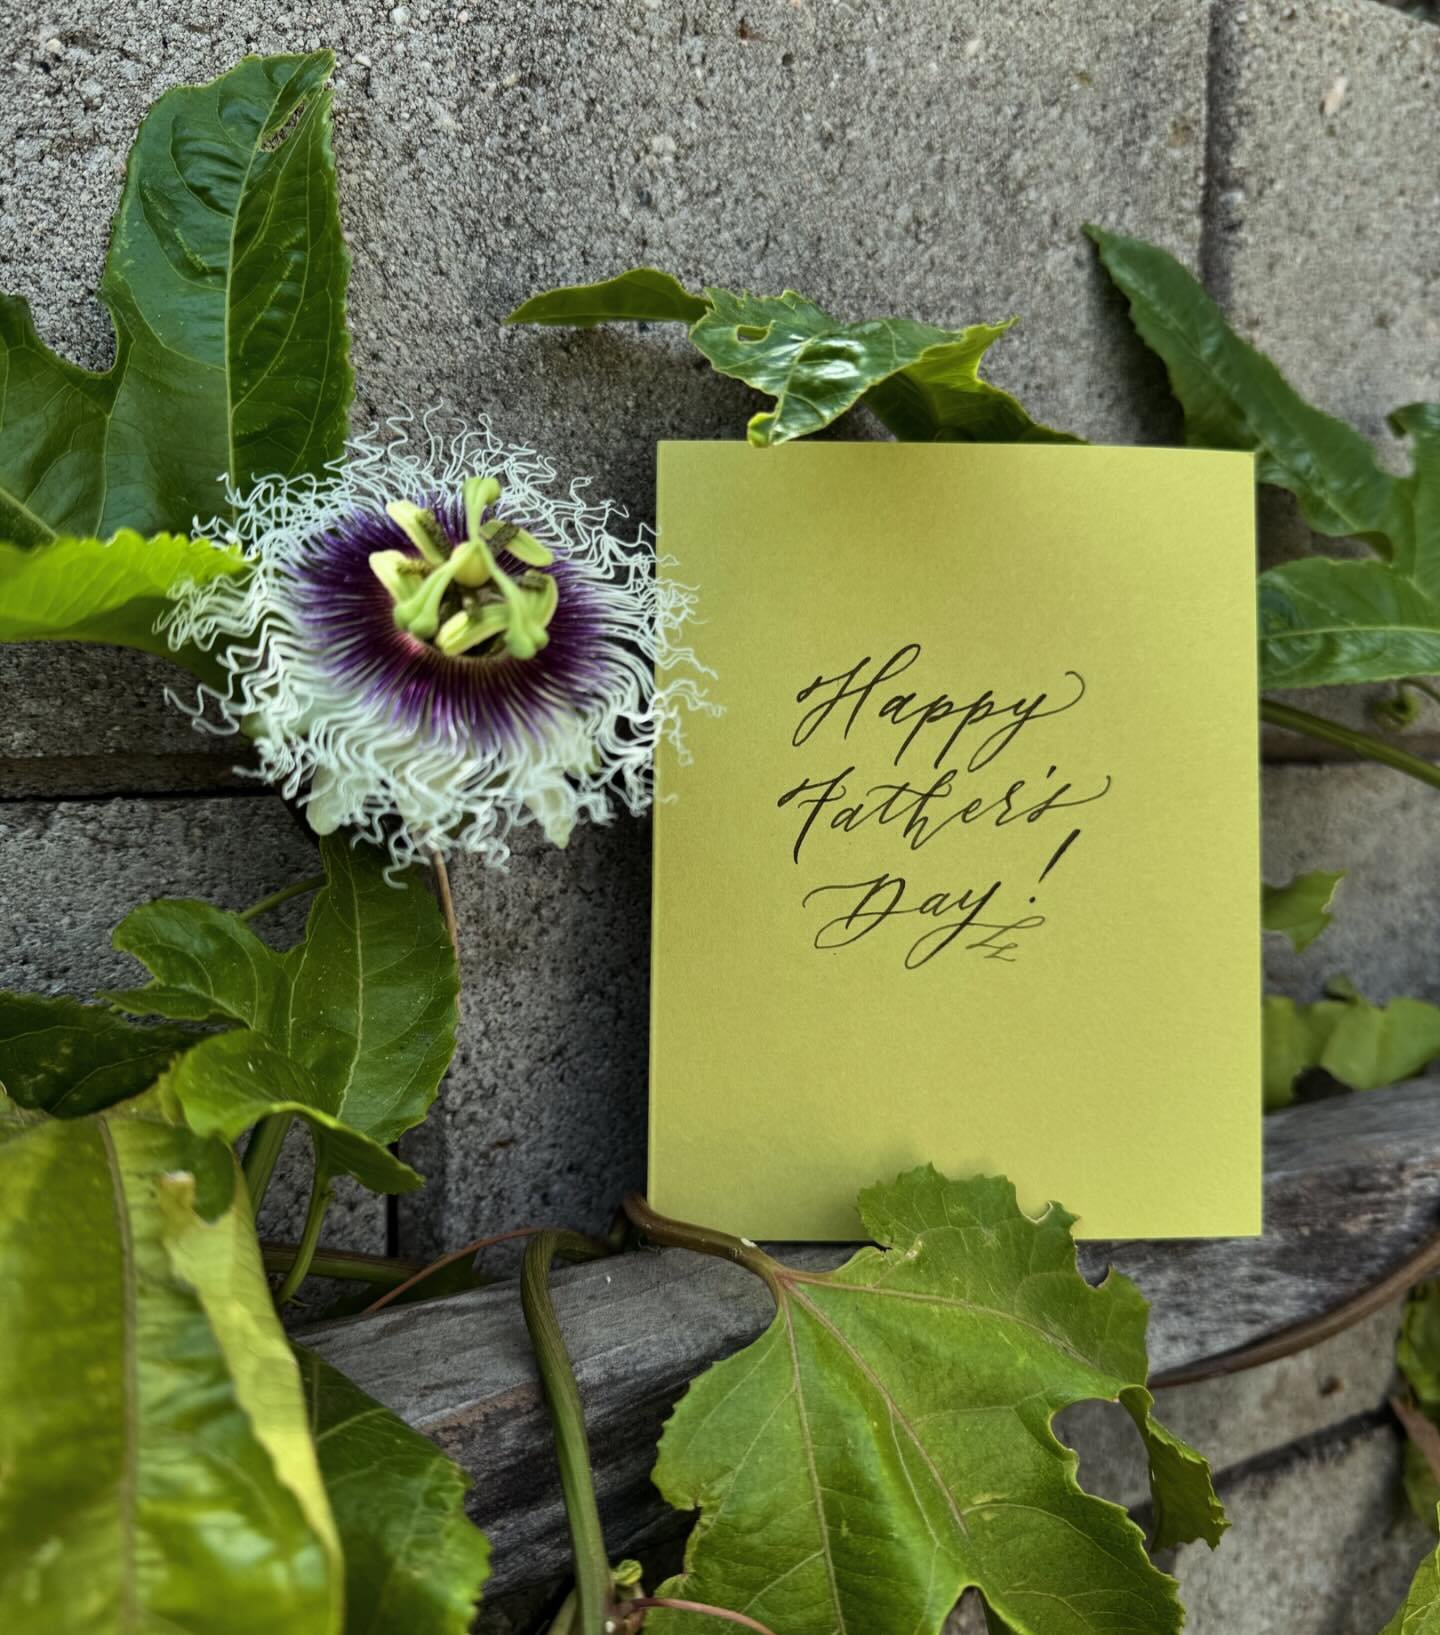 Happy
Father's
Day!